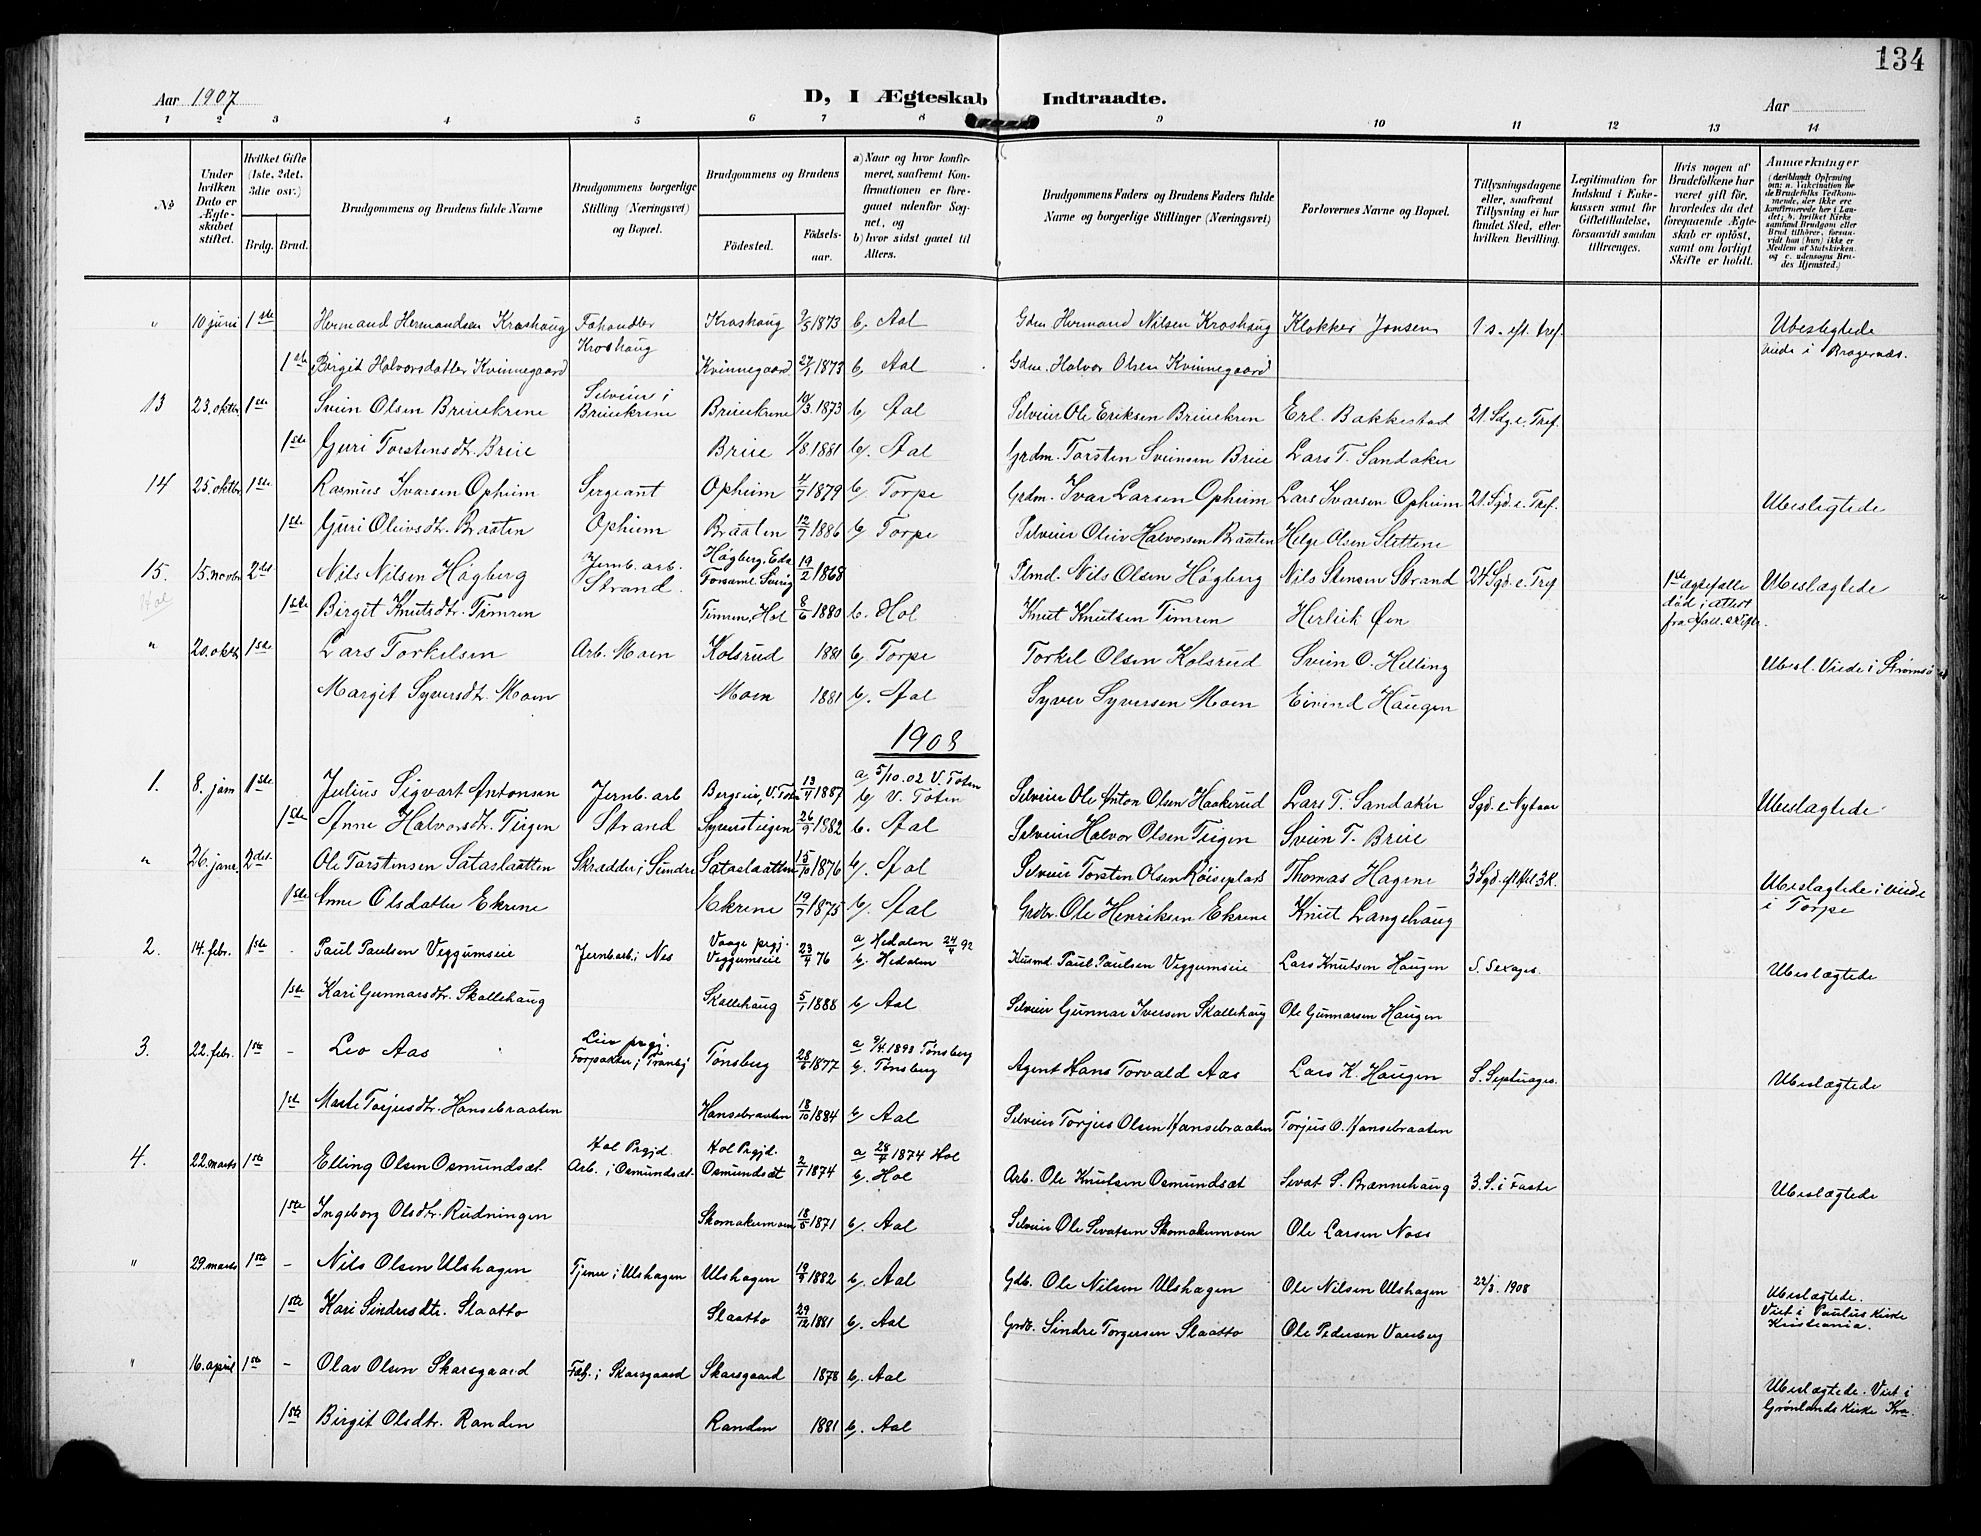 134
Aar 1907 D, I Ægteskab Indtraadte. Aar
1 2 3 4 5 6 7 8 9 10 11 12 13 14
№
Under hvilken Dato er Ægteskabet stiftet.
Hvilket Gifte (1ste, 2det, 3die osv.)
Brdg. Brud.
Brudgommens og Brudens fulde Navne
Brudgommens borgerlige Stilling (Næringsvei) og Bopæl.
Brudgommens og Brudens
Födested. Födselsaar.
a) Naar og hvor konfirmeret, saafremt Konfirmationen er foregaaet udenfor Sognet, og
b) hvor sidst gaaet til Alters.
Brudgommens Faders og Brudens Faders fulde Navne og borgerlige Stillinger (Næringsvei)
Forlovernes Navne og Bopæl.
Tillysningsdagene eller, saafremt Tillysning ei har fundet Sted, efter hvilken Bevilling.
Legitimation for Indskud i Enkekassen samt for Giftetilladelse, forsaavidt saadan tiltrænges.
Hvis nogen af Brudefolkene har været gift för, hvorledes da det foregaaende Ægteskab er oplöst, samt om lovligt Skifte er holdt.
Anmærkninger (deriblandt Oplysning om: a. Vakcination for de Brudefolks Vedkommende, der ikke ere konfirmerede her i Landet; b. hvilket Kirkesamfund Brudgom eller Brud tilhörer, forsaavidt han (hun) ikke er Medlem af Statskirken, og c. udensogns Brudes Hjemsted.)
" 10 juni 1ste Hermand Hermandsen Kroshaug Fæhandler Kroshaug Kroshaug 9/5 1873 b, Aal Gdm Hermand Nilsen Kroshaug Klokker Jonsen 1 s. eft. tref. Ubeslegtede
1ste Birgit Halvorsdatter Kvinnegaard Kvinnegaard 27/1 1873 b, Aal Gdm. Halvor Olsen Kvinnegaard viede i Bragernæs.
13 23. oktbr 1ste Svein Olsen Brieiekrene Selveier i Brieiekrene Brieiekrene 14/3 1873 b, Aal Selveier Ole Eriksen Brieiekren Erl. Bakkestad 21. Sdg. e. Tref.
1ste Guri Torstensdt. Breie Breie 1/8 1881 b. Aal Grdm. Torsten Sveinsen Breie Lars T. Sandaker
14 25. oktbr 1ste Rasmus Ivarsen Opheim Sergeant Opheim 4/7 1879 b, Torpe Grdm. Ivar Larsen Opheim Lars Ivarsen Opheim 21. Sgd. e. Tref. Ubeslegtede
1ste Guri Oleivsdt. Braaten Opheim Braaten 12/7 1886 b, Torpe Selveier Oleiv Halvorsen Braaten Helge Olsen Slettene
15. 15. novbr 2det Nils Nilsen Høgberg Jernb. arb. Strand. Høgberg, Eda Forsaml. Sverig 19/2 1868 Plmd. Nils Olsen Høgberg Nils Stensen Strand 24 Sgd. e. Tref 1ste ægtefælle død i attest fra Ubeslægtede
Hol 1ste Birgit Knutsdtr. Timren Timren, Hol 8/6 1880 b. Hol Knut Knutsen Timren Herleik Øen
" 20. oktbr 1ste Lars Torkelsen Arb. Moen Kolsrud 1881 b, Torpe Torkel Olsen Kolsrud Svein O. Helling Ubesl. Viede i Strømsø
Margit Syversdt. Moen Moen 1881 b, Aal Syver Syversen Moen Eivind Haugen
1908
1. 8. jan 1ste Julius Sigvart Antonsen Jernb. arb Bergseie, V. Toten 13/4 1887 a, 5/10.02 V. Toten b, V. Toten Selveier Ole Anton Olsen Haakerud Lars T. Sandaker Sgd. e. Nytaar Ubeslagtede
1ste Anne Halvorsdt. Teigen Strand Syversteigen 26/9 1882 b. Aal Selveier Halvor Olsen Teigen Svein T. Breie
" 26. jan. 2det Ole Torstensen Sataslaatten Skrædder i Sundre Sataslaatten 15/10 1876 b, Aal Selveier Torsten Olsen Røiseplads Thomas Hagene 3 Sgd. eft. Htl 3 K. Ubeslagtede; viede i Torpe
1ste Anne Olsdatter Ekrene Ekrene 19/7 1875 b, Aal Grdbr. Ole Henriksen Ekrene Knut Langehaug
2. 14. febr. 1ste - Paul Paulsen Veggumseie Jernb arb. i Nes Vaage prgj. Veggumseie 23/4 76 a, Hedalen 24/4 92 b, Hedalen Husmd Paul Paulsen Veggumseie Lars Knutsen Haugen S. Sexages. Ubeslægtede
1ste Kari Gunnarsdt. Skallehaug Skallehaug 5/1 1888 b, Aal Selveier Gunnar Iversen Skallehaug Ole Gunnarsen Haugen
3. 22. febr. 1ste - Leo Aas Lier prgj. Forpakter i Tranby Tønsberg 28/6 1877 a 9/4. 1893 Tønsberg b, Tønsberg Agent Hans Torvald Aas Lars K. Haugen S. Septuages. Ubeslægtede
1st Marte Torjusdtr. Hansebraaten Hansebraaten 18/10 1884 b, Aal Selveier Torjus Olsen Hansebraaten Torjus O. Hansebraaten
4. 22. marts 1ste Elling Olsen Osmundsæt. Hol Prgjd. Arb. i Osmundsæt. Hol Prgjd. Osmundsæt 2/1 1874 a 28/9 1874 Hol b, Hol Arb. Ole Knutsen Osmundsæt Sevat S. Brænnehaug 3. S. i Faste Ubeslægtede
1ste Ingeborg Olsdtr. Rudningen Skomakermoen 18/5 1871 b, Aal Selveier Ole Sevatsen Skomakermoen Ole Larsen Noss
" 29. marts 1ste - Nils Olsen Ulshagen Tjener i Ulshagen Ulshagen 19/9 1882 b, Aal Gdb. Ole Nilsen Ulshagen Ole Nilsen Ulshagen 22/3. 1908 Ubeslægtede.
1ste Kari Sindresdtr. Slaatto Slaatto 29/12 1881 b, Aal Grdb. Sindre Torgersen Slaatto Ole Pedersen Vareberg Viet i Paulus Kirke Kristiania.
" 16. april 1ste - Olav Olsen Skarsgaard Fæh. i Skarsgaard Skarsgaard 1878 b, Aal Ubeslægtede. Viet i Grønlands Kirke Kra.
1ste Birgit Olsdtr. Randen Randen 1881 b, Aal